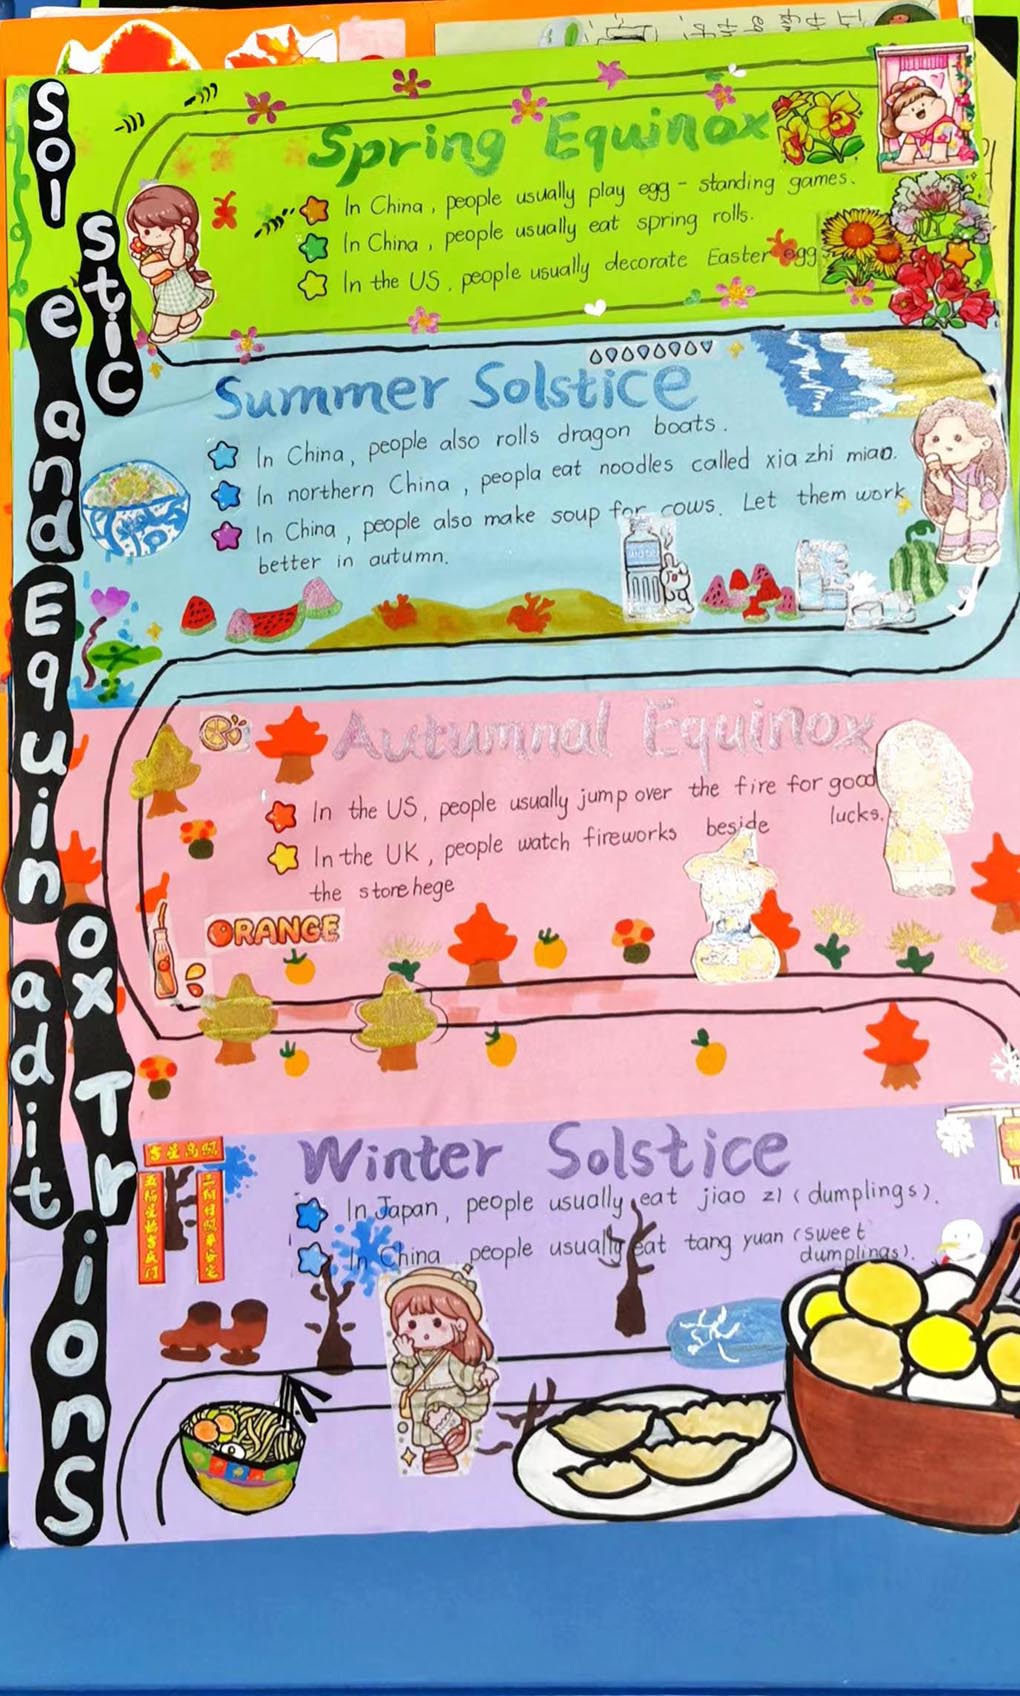 Solstice and Equinox Traditions
Spring Equinox
In China, people usually play egg-standing games.
In China, people usually eat spring rolls.
In the US, people usually decorate Easter egg
Summer Solstice
In China, people also rolls dragon boats.
In northern China, peopla eat noodles called xia zhi miao.
In China, people also make soup for cows. Let them work
better in autumn.
water
Autumnal Equinox
In the US, people usually jump over the fire for good
lucks.
In the UK, people watch fireworks beside
the storehege
ORANGE
Winter Solstice
In Japan, people usually eat jiao zi (dumplings).
In China, people usually eat tang yuan (sweet
dumplings).